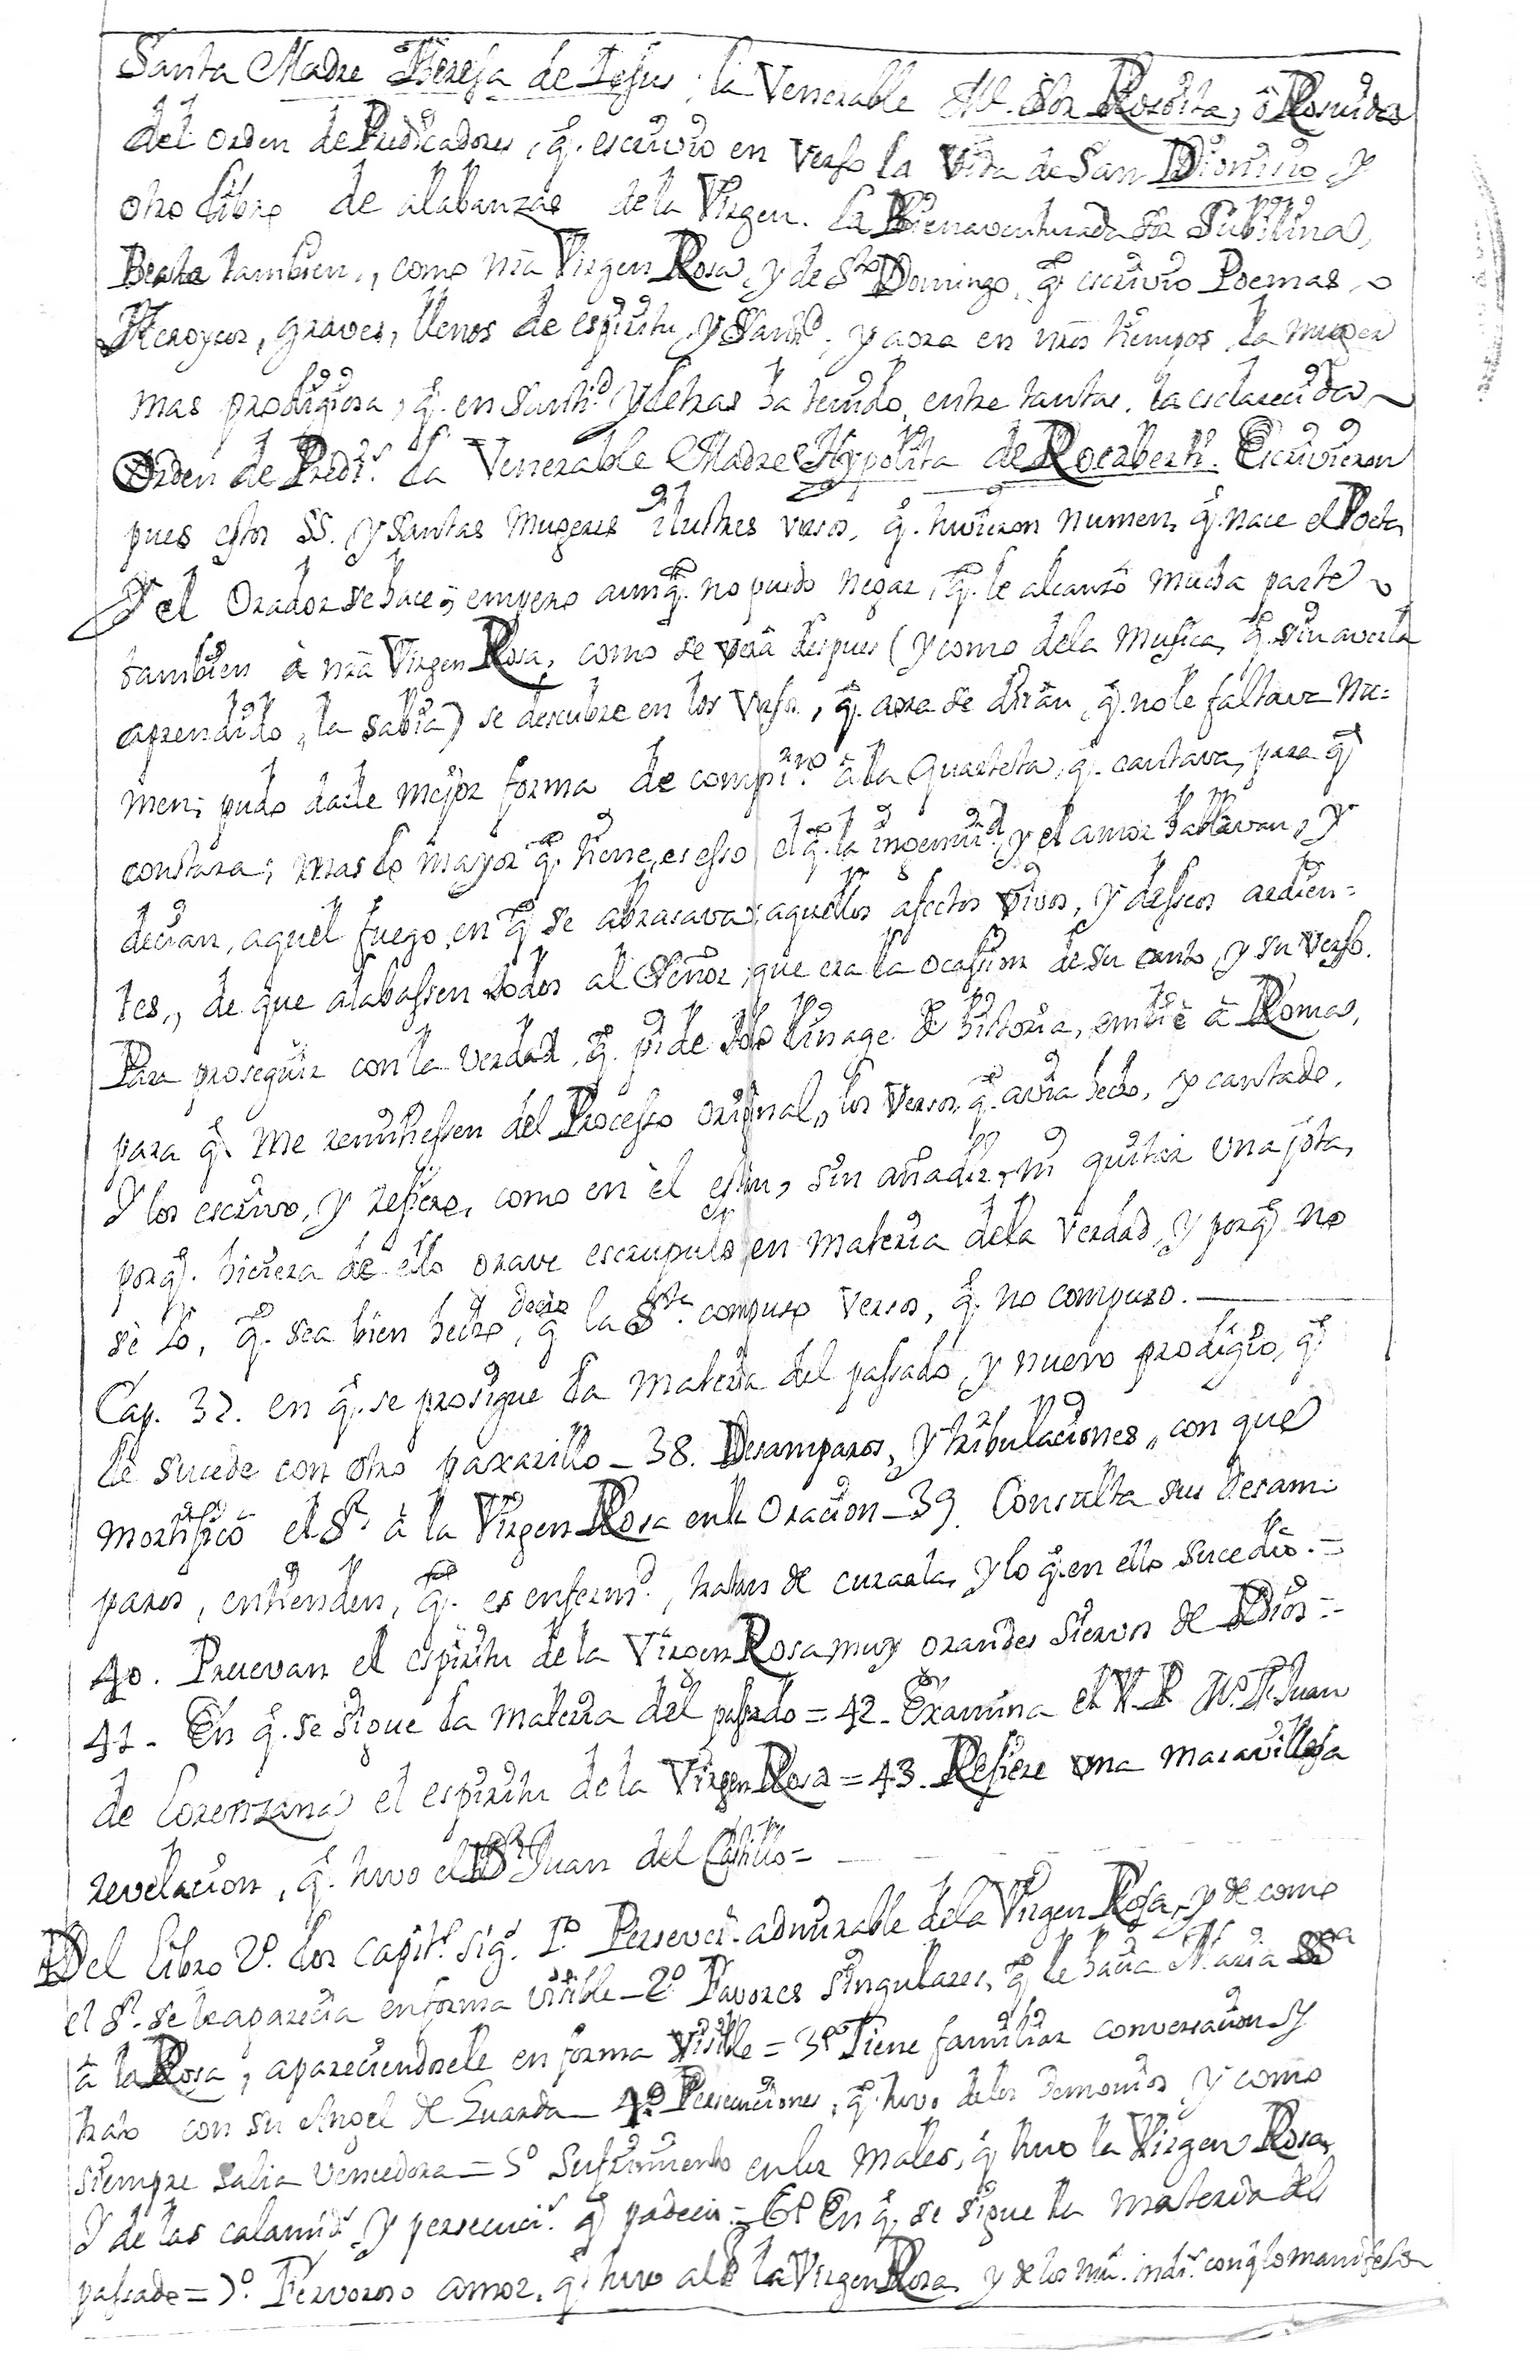 Santa Madre Theresa de Jesus, la Venerable M. Sor Rosvita, ô Rosuida
del orden de Predicadores, q. escrivio en verso la Vida de San Dionisio, y
otro libro de alabanzas de la Virgen. La Bienaventurada Sor Sibilina,
Beata tambien, como nrâ Virgen Rosa, y de Sto Domingo, q. escrivio Poemas
Heroycos, graves, llenos de espiritu, y Santd.; y aora en nros tiempos, la muger
mas prodigiosa, q. en Santd. y letras ha tenido, entre tantas, la esclarecida
Orden de Predrs. la Venerable Madre Hypolita de Rocaberti. Escrivieron
pues estos SS. y Santas Mugeres ilustres versos, q. tuvieron numen, q. nace el Poeta,
Y el Orador se hace; empero aunq. no puedo negar, q. le alcanzó mucha parte
tambien à nrâ Virgen Rosa, como se verâ despues (y como dela Musica, q. sin averla
aprendido, la sabia) se descubre en los versos, q. aora se dirân, q. no le faltava nu=
men; pudo darle mejor forma de compmo. â la Quarteta, q. cantava, para q.
constara; mas lo mayor q. tiene, es esso el q. la ingenuid., y el amor hablavan, y
decian, aquel fuego, en q. se abrasava; aquellos afectos vivos, y desseos ardien=
tes, de que alabassen todos al Señor, que era la ocasion de su canto, y su verso.
Para proseguir con la verdad, q. pide todo linage de historia, embiè à Roma,
para q. me remitiessen del Processo original, los versos q. avia hecho, y cantado,
Y los escrivo, y refiero, como en èl estan, sin añadir, ni quitar una jota,
porq. hiciera de ello grave escrupulo en materia dela verdad, y porq. no
sè Yo, q. sea bien hecho, decir q. la Sta. compuso versos, q. no compuso.
Cap. 37. en q. se prosigue la materia del passado, y nuevo prodigio, q.
le sucede con otro paxarillo - 38. Desamparos, y tribulaciones, con que
mortificò el Sr. à la Virgen Rosa en la Oracion - 39. Consulta sus desam=
paros, entienden, q. es enfermd., tratan de curarla, y lo q. en ello sucediò. =
40. Pruevan el espiritu de la Virgen Rosa muy grandes siervos de Dios =
41 - En q. se sigue la materia del passado = 42 - Examina el V. P. M. F. Juan
de Lorenzana el espiritu de la Virgen Rosa = 43. Refiere una maravillosa
revelacion, q. tuvo el Dr. Juan del Castillo =
Del Libro 2º. los capits. sigs. 1º. Persever. admirable dela Virgen Rosa, y de como
el Sr. se le aparecia en forma visible - 2º Favores singulares, q. le hacia Maria SSa
â la Rosa, apareciendosele en forma visible = 3º Tiene familiar conversacion, y
trato con su Angel de Guarda - 4º Persecuciones, q. tuvo delos demonios, y como
siempre salia vencedora = 5º Sufrimiento enlos males, q. tuvo la Virgen Rosa,
Y de las calamids. y persecucs. q. padeciò = 6º En q. se sigue la materia del
passado = 7º. Fervoroso amor, q. tuvo al Sr. la Virgen Rosa, y de los conq. lo manifestò